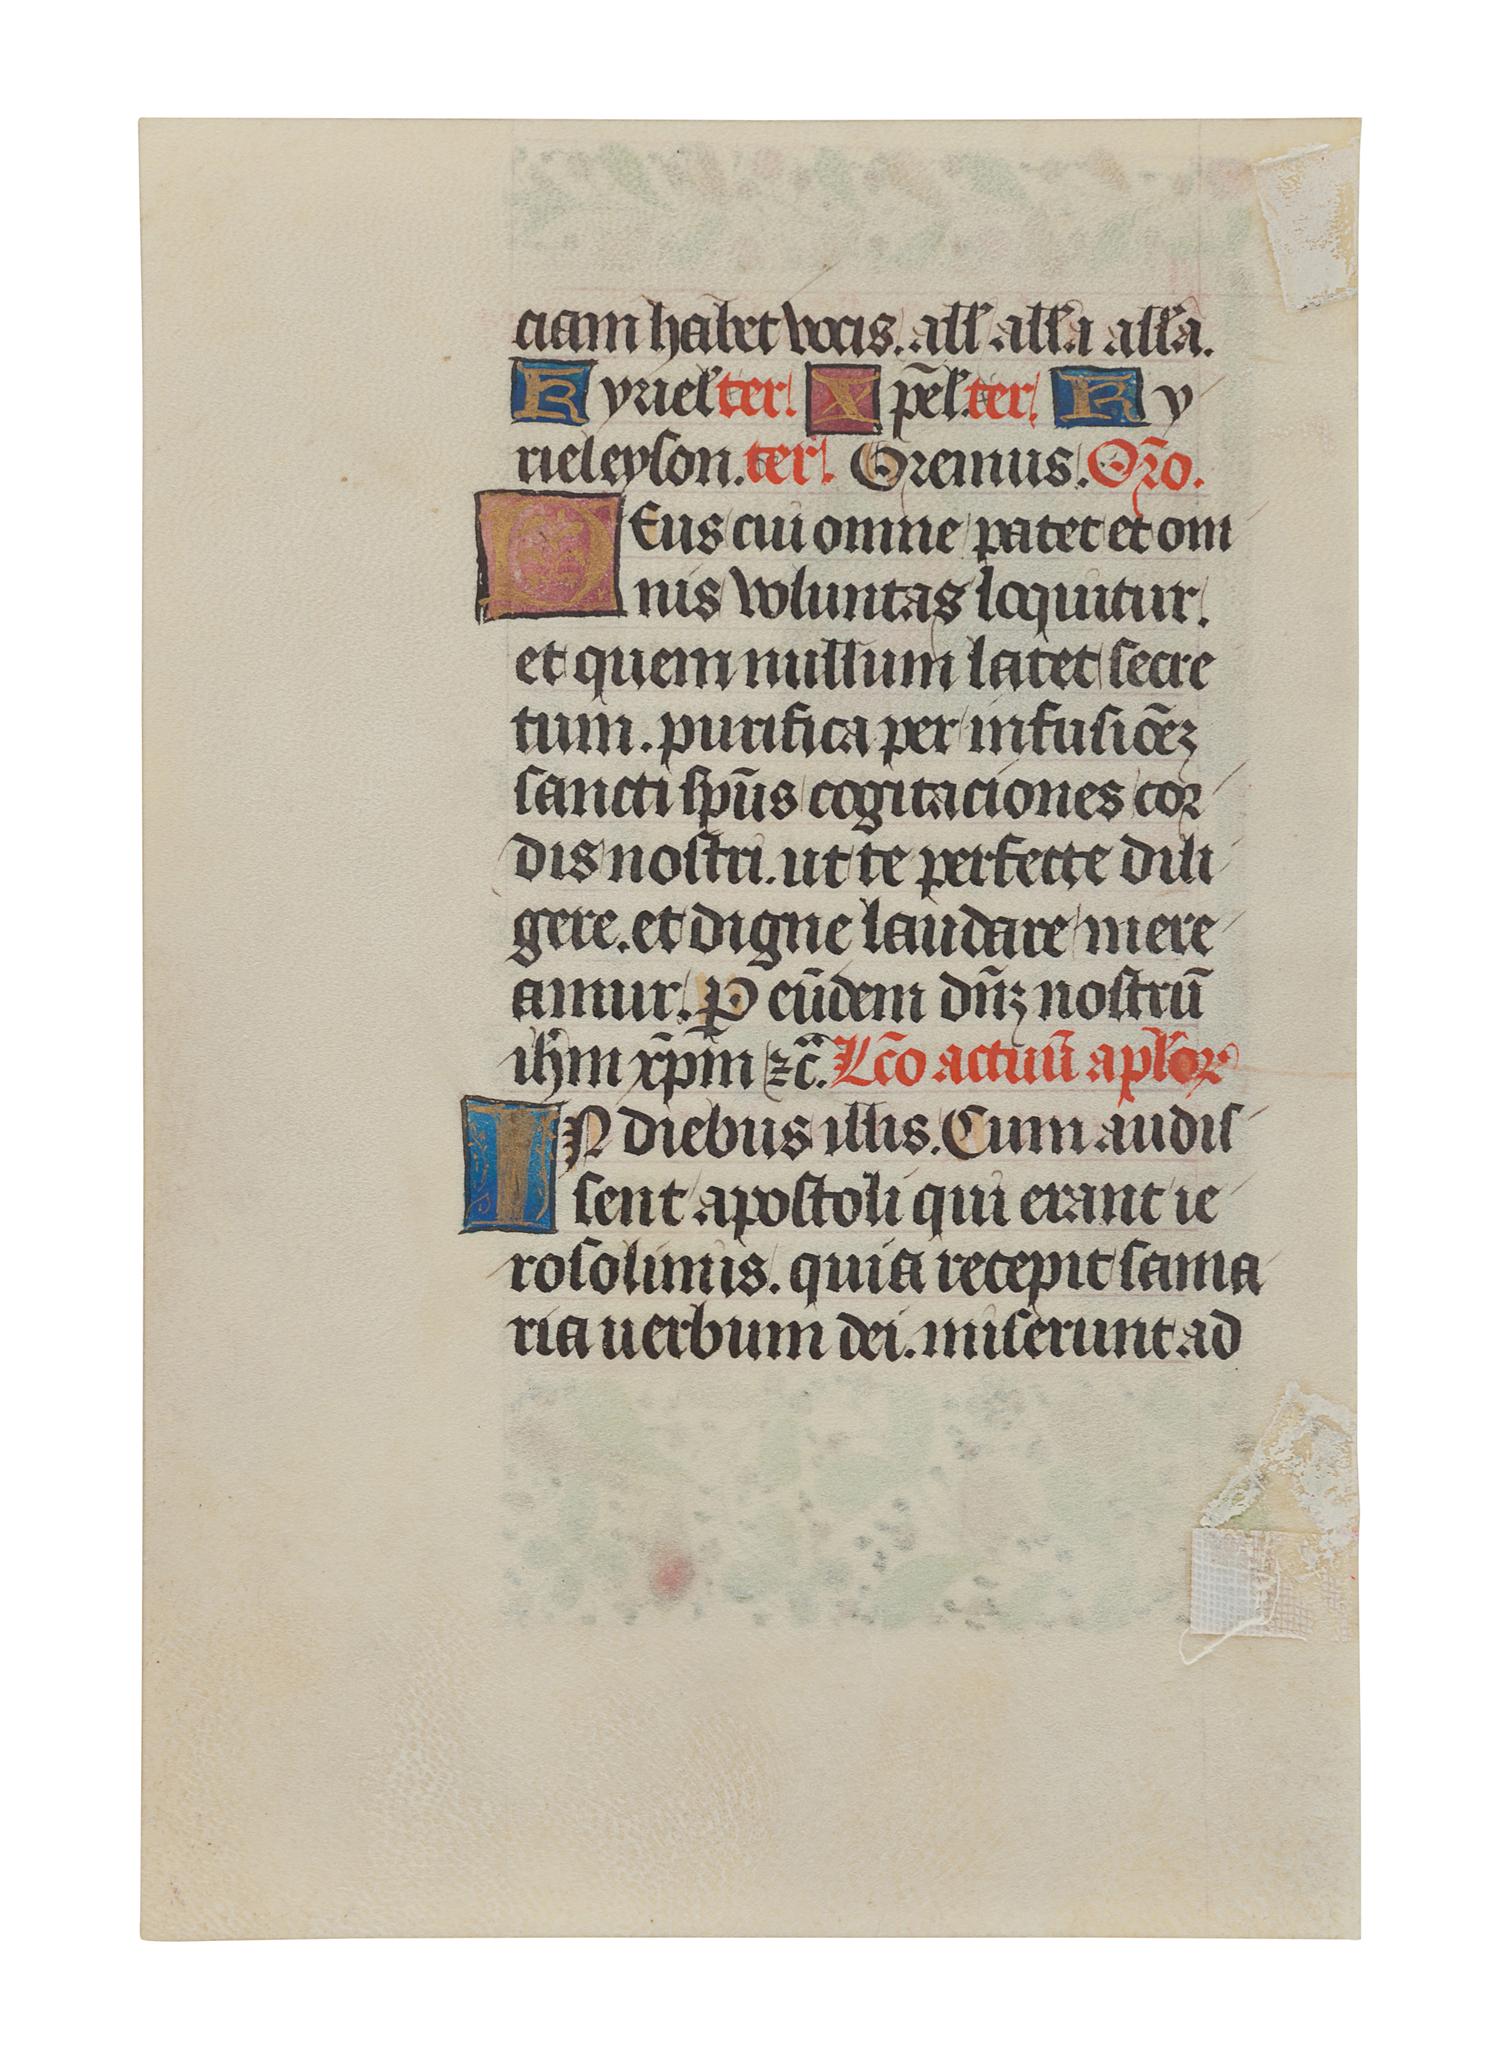 ciam habet vocis. all̃ all̃a all̃a.
Kyriel̃ ter. Xp̃el̃. ter. Ky
rieleyson. ter. Oremus. Or̃o.
DEus cui omne patet et om
nis voluntas loquitur.
et quem nullum latet secre
tum. purifica per infusiõez
sancti sp̃us cogitaciones cor
dis nostri. ut te perfecte dili
gere. et digne laudare mere
amur. P eũdem dñz nostrũ
ihm xp̃m ⁊c̃. Lc̃o actuũ apl̃oꝝ
IN diebus illis. Cum audis
sent apostoli qui erant ie
rosolimis. quia recepit sama
ria uerbum dei. miserunt ad